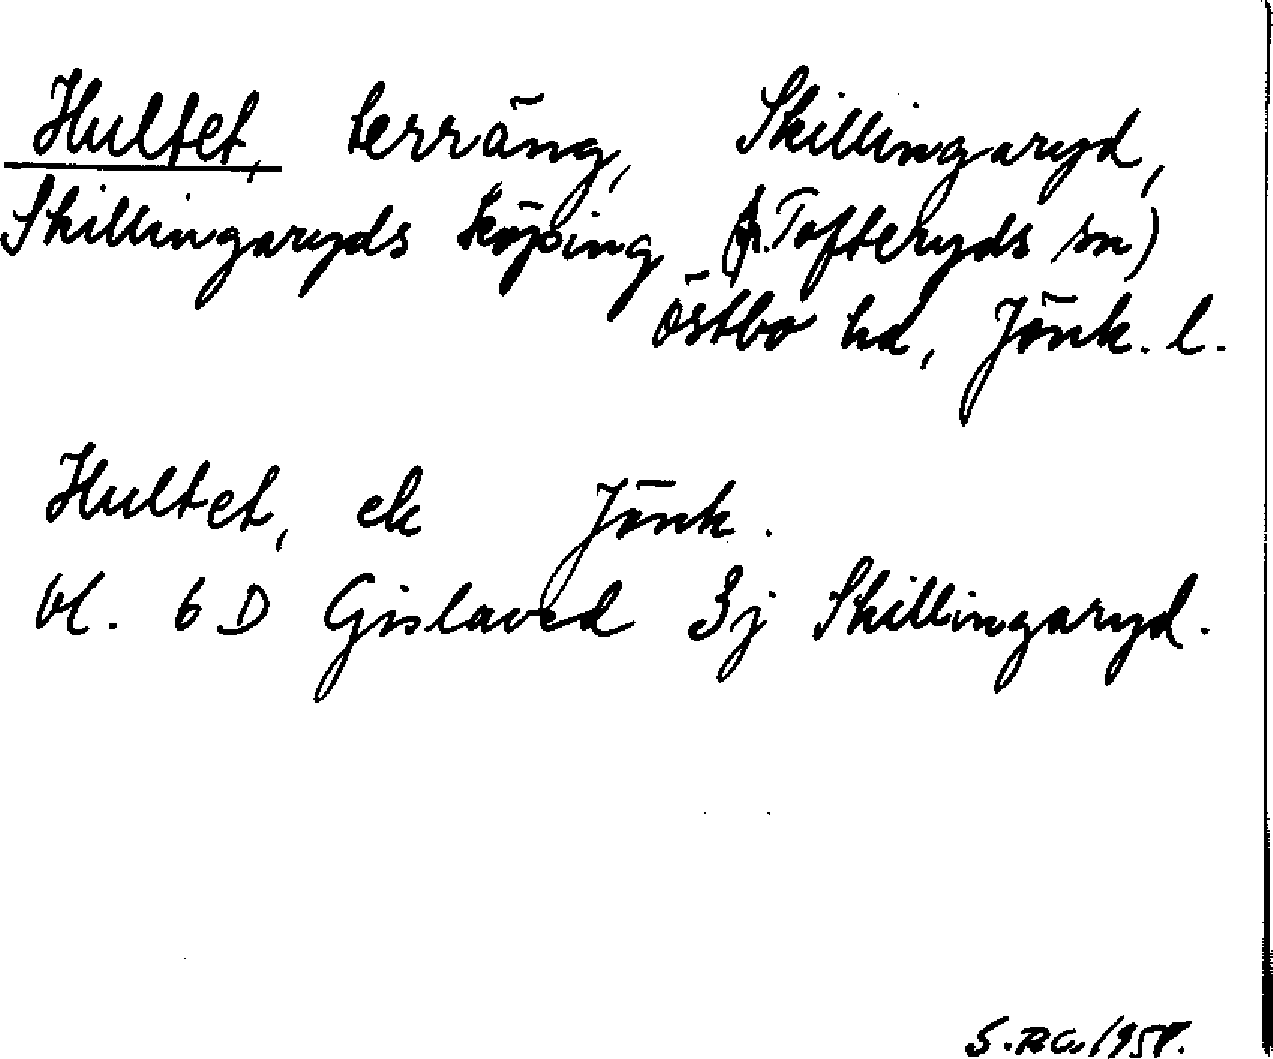 Hultet, terräng, Skillingaryd,
Skillingaryds köping (f. Tofteryds sn)
Östbo hd, Jönk. l.
Hultet, ek Jönk.
bl. 6 D Gislaved 3j Skillingaryd.